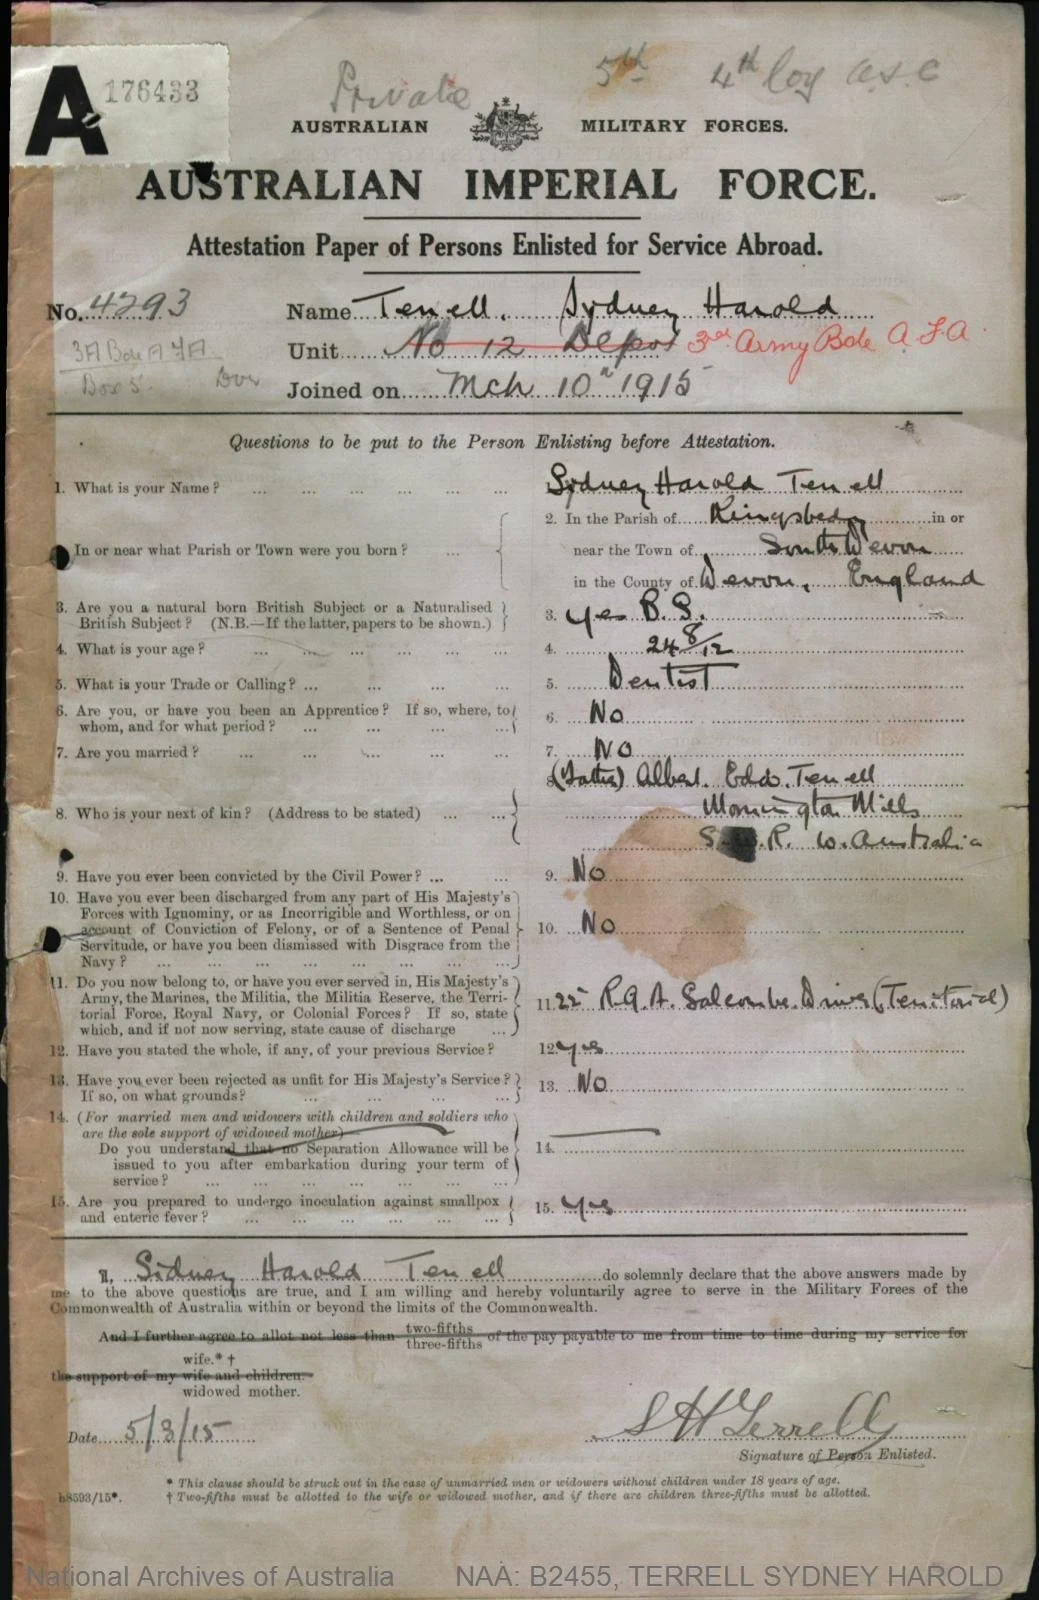 A 176433
Private 5th 4th Coy A.S.C
AUSTRALIAN MILITARY FORCES.
AUSTRALIAN IMPERIAL FORCE.
Attestation Paper of Persons Enlisted for Service Abroad.
No. 4293 Name Terrell. Sydney Harold
3A Bde A.F.A. Unit No 12 Depot 3rd Army Bde A.F.A
Box 5. Dvr Joined on Mch 10th 1915
Questions to be put to the Person Enlisting before Attestation.
1. What is your Name? ... ... ... ... ... ... Sydney Harold Terrell
2. In the Parish of Kingsbedg in or
In or near what Parish or Town were you born? ... near the Town of South Devon
in the County of Devon, England
3. Are you a natural born British Subject or a Naturalised
British Subject? (N.B.—If the latter, papers to be shown.) 3. Yes B.S.
4. What is your age? ... ... ... ... ... ... 4. 24 8/12
5. What is your Trade or Calling? ... ... ... ... 5. Dentist
6. Are you, or have you been an Apprentice? If so, where, to
whom, and for what period? ... ... ... ... 6. No
7. Are you married? ... ... ... ... ... ... 7. No
8 (Father) Albert. Edw. Terrell
8. Who is your next of kin? (Address to be stated) ... ... Mornington Mills
S.W.R. W. Australia
9. Have you ever been convicted by the Civil Power? ... ... 9. No
10. Have you ever been discharged from any part of His Majesty's
Forces with Ignominy, or as Incorrigible and Worthless, or on
account of Conviction of Felony, or of a Sentence of Penal 10. No
Servitude, or have you been dismissed with Disgrace from the
Navy? ... ... ... ... ... ... ...
11. Do you now belong to, or have you ever served in, His Majesty's
Army, the Marines, the Militia, the Militia Reserve, the Terri- 11. 22 R.G.A. Salcombe. Driver (Territorial)
torial Force, Royal Navy, or Colonial Forces? If so, state
which, and if not now serving, state cause of discharge ...
12. Have you stated the whole, if any, of your previous Service? 12. Yes
13. Have you ever been rejected as unfit for His Majesty's Service? 13. No
If so, on what grounds? ... ... ...
14. (For married men and widowers with children and soldiers who
are the sole support of widowed mother)
Do you understand that no Separation Allowance will be 14.
issued to you after embarkation during your term of
service? ... ... ... ... ... ...
15. Are you prepared to undergo inoculation against smallpox 15. Yes
and enteric fever? ... ... ... ... ... ...
I, Sidney Harold Terrell do solemnly declare that the above answers made by
me to the above questions are true, and I am willing and hereby voluntarily agree to serve in the Military Forces of the
Commonwealth of Australia within or beyond the limits of the Commonwealth.
And I further agree to allot not less than two-fifths three-fifths of the pay payable to me from time to time during my service for
wife.* †
the support of my wife and children.
widowed mother.
Date 5/3/15 S H Terrell
Signature of Person Enlisted.
* This clause should be struck out in the case of unmarried men or widowers without children under 18 years of age.
b8593/15*. † Two-fifths must be allotted to the wife or widowed mother, and if there are children three-fifths must be allotted.
National Archives of Australia NAA: B2455, TERRELL SYDNEY HAROLD